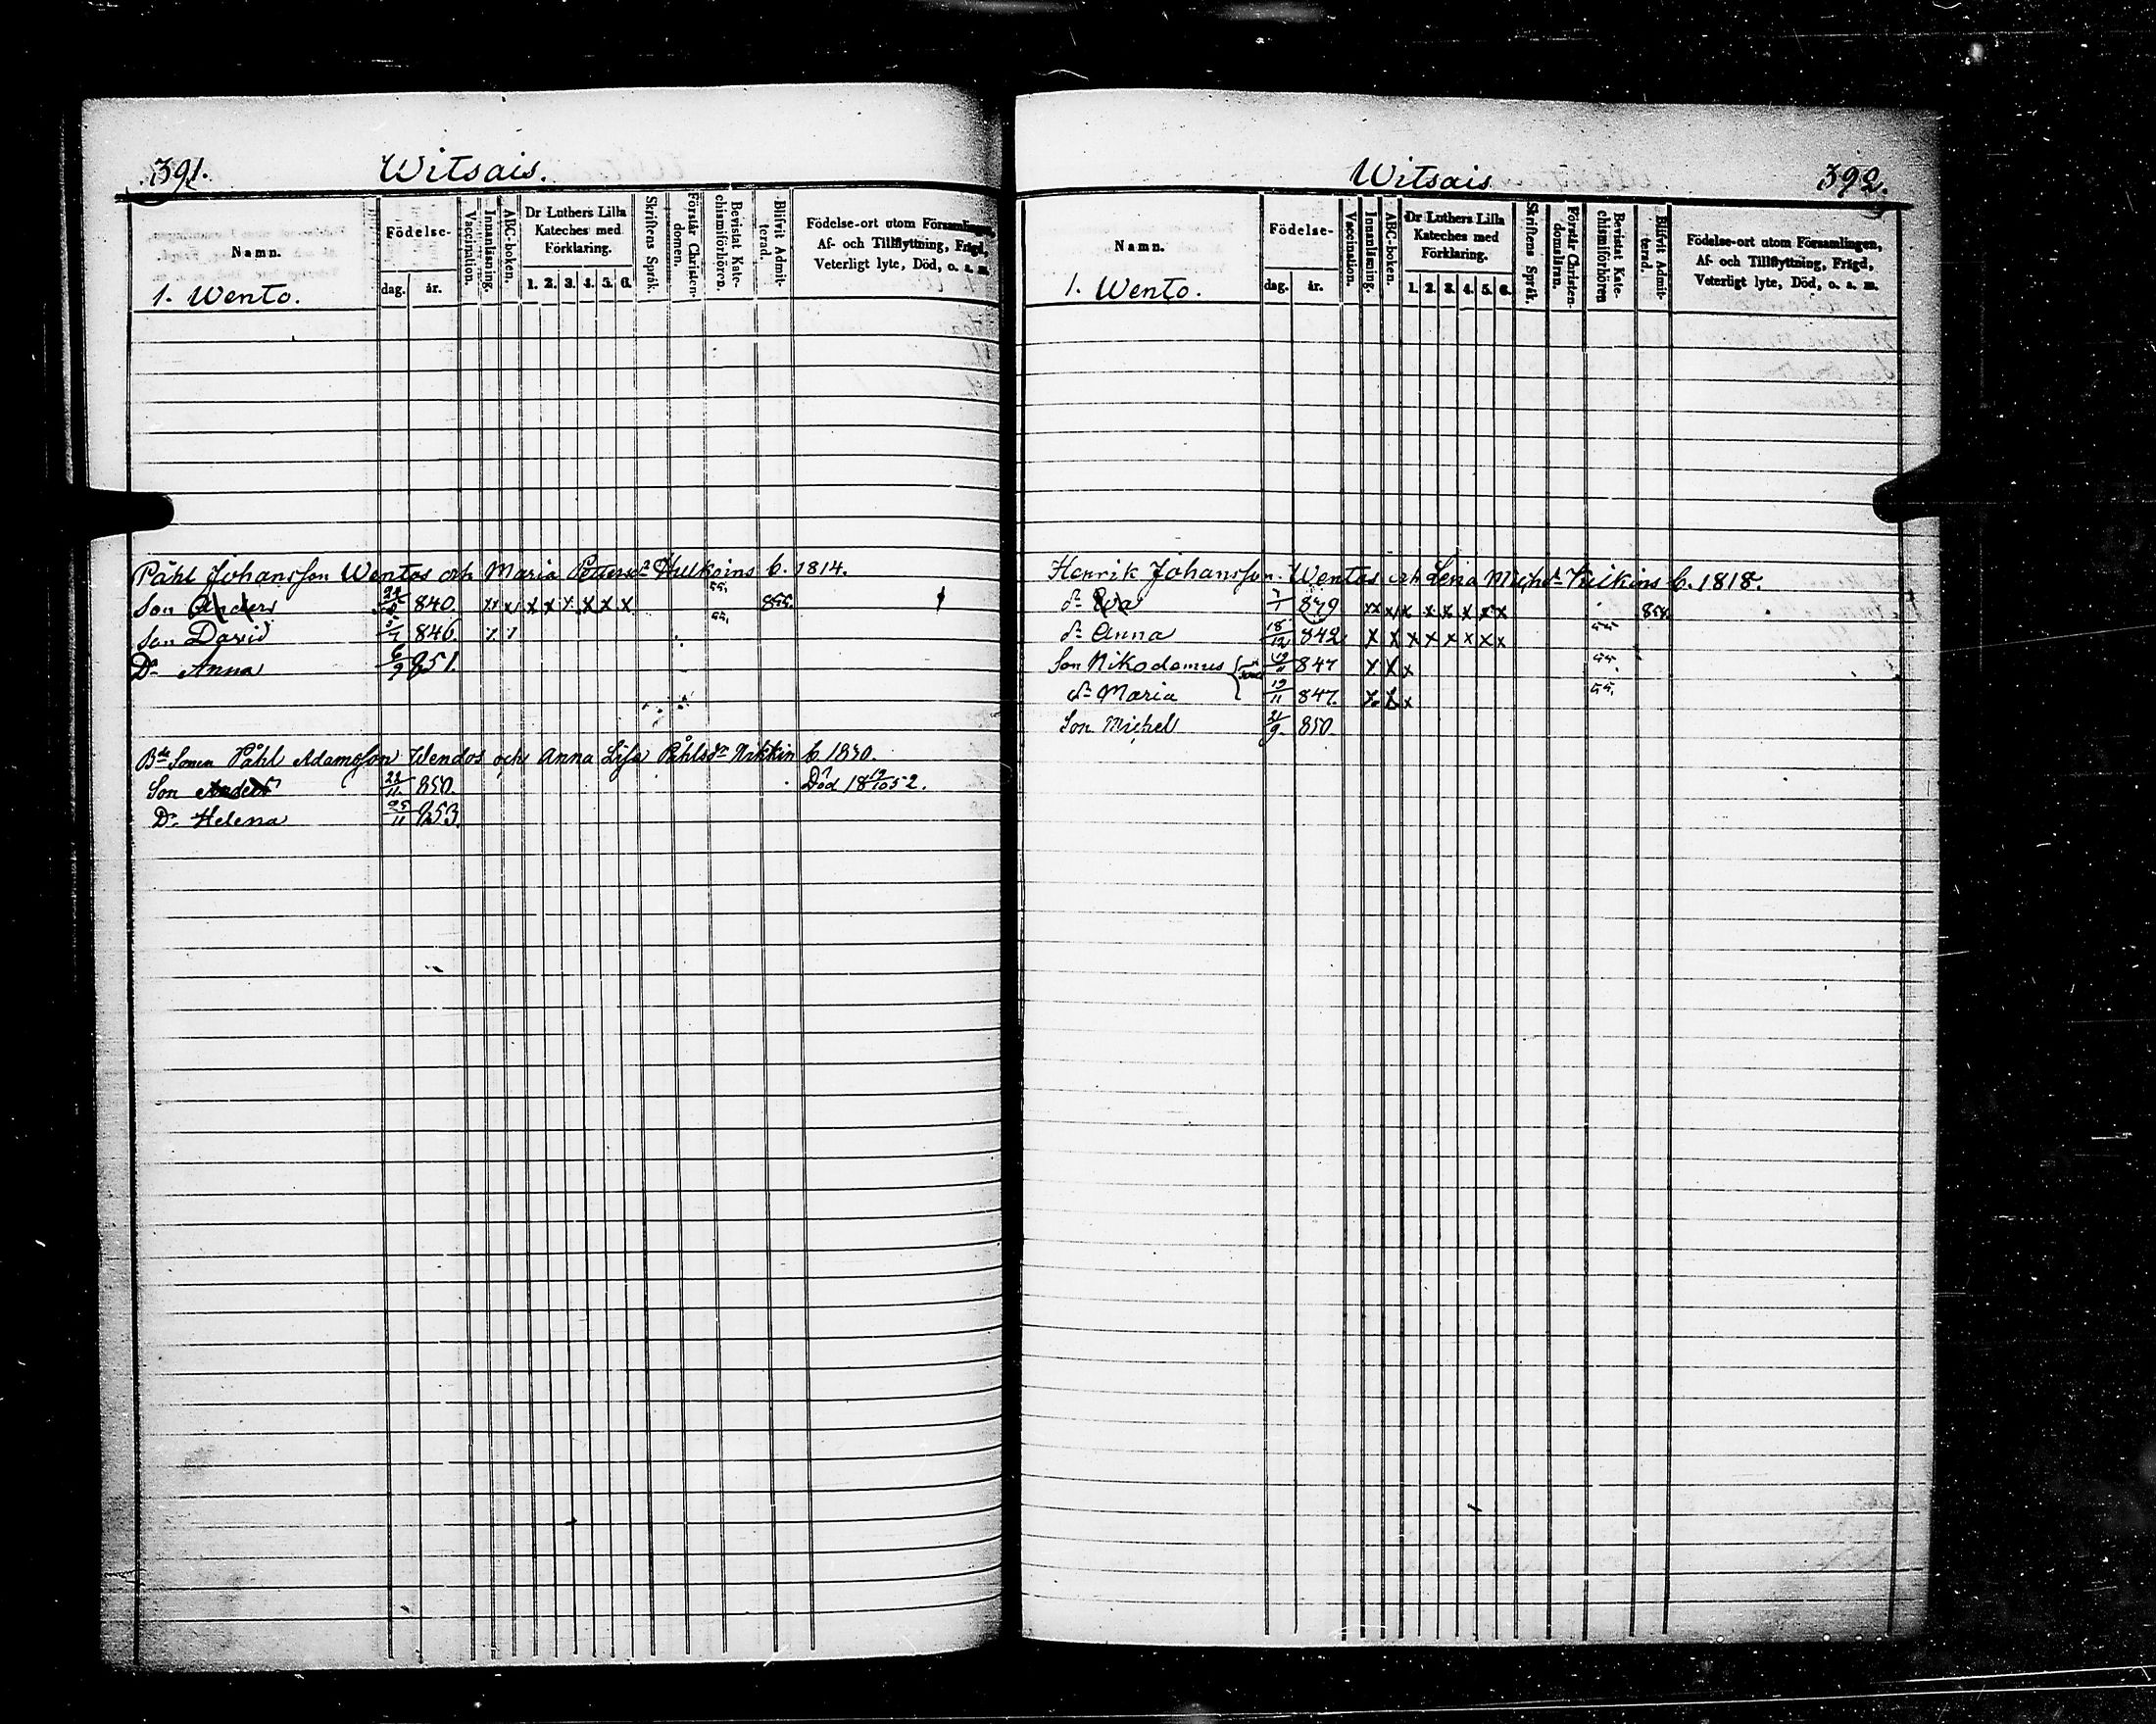 391. Witsais.
Namn. Födelse- Vaccination. Innanläsning. ABC-boken. Dr Luthers Lilla Kateches med Förklaring. Skriftens Språk. Förstår Christendomen. Bevistat Katechismiförhören. Blifvit Admitterad. Födelse-ort utom Församlingen, Af- och Tillflyttning, Frägd, Veterligt lyte, Död, o. s. m.
1. Wento. dag. år. 1. 2. 3. 4. 5. 6.
Påhl Johansson Wentos och Maria b. 1814.
55.
Son Anders 22/5 840. xx x x x x x x x 855.
55.
Son David 5/1 846
Dr Anna 6/9 851.
Bde Sonen Påhl Adamsson Wendos och Anna Lisa Påhlsdr Nikkin b. 1830.
Son Anders 22/11 850. Död 18 19/10 52.
Dr Helena 25/11 853.
Witsais 392.
Namn. Födelse- Vaccination. Innanläsning. ABC-boken. Dr Luthers Lilla Kateches med Förklaring. Skriftens Språk. Förstår Christendomsläran. Bevistat Katechismiförhören Blifvit Admitterad. Födelse-ort utom Församlingen, Af- och Tillflyttning, Frägd, Veterligt lyte, Död, o. s. m.
1. Wento. dag. år. 1. 2. 3. 4. 5. 6.
Henrik Johansson Wentos och Lena Michsdr b. 1818.
dr Eva 7/1 839 xx x x x x x x x 854.
dr Anna 18/12 842. x x x x x x x x 55
Son Nikodemus 19/11 847 x x x 55.
dr Maria 19/11 847. x x x 55.
Son Michel 21/9 850.